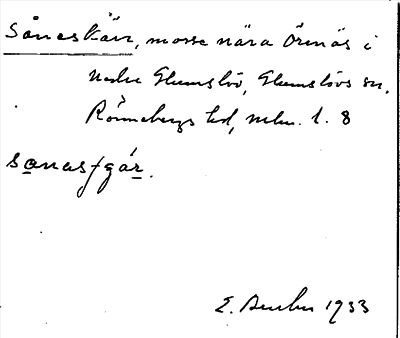 Såneskärr, mosse nära Örenäs i
nedre Glumslöv, Glumslövs sn,
Rönnebergs hd, mbl. 1. 8
sånasfgár.
E. 1933